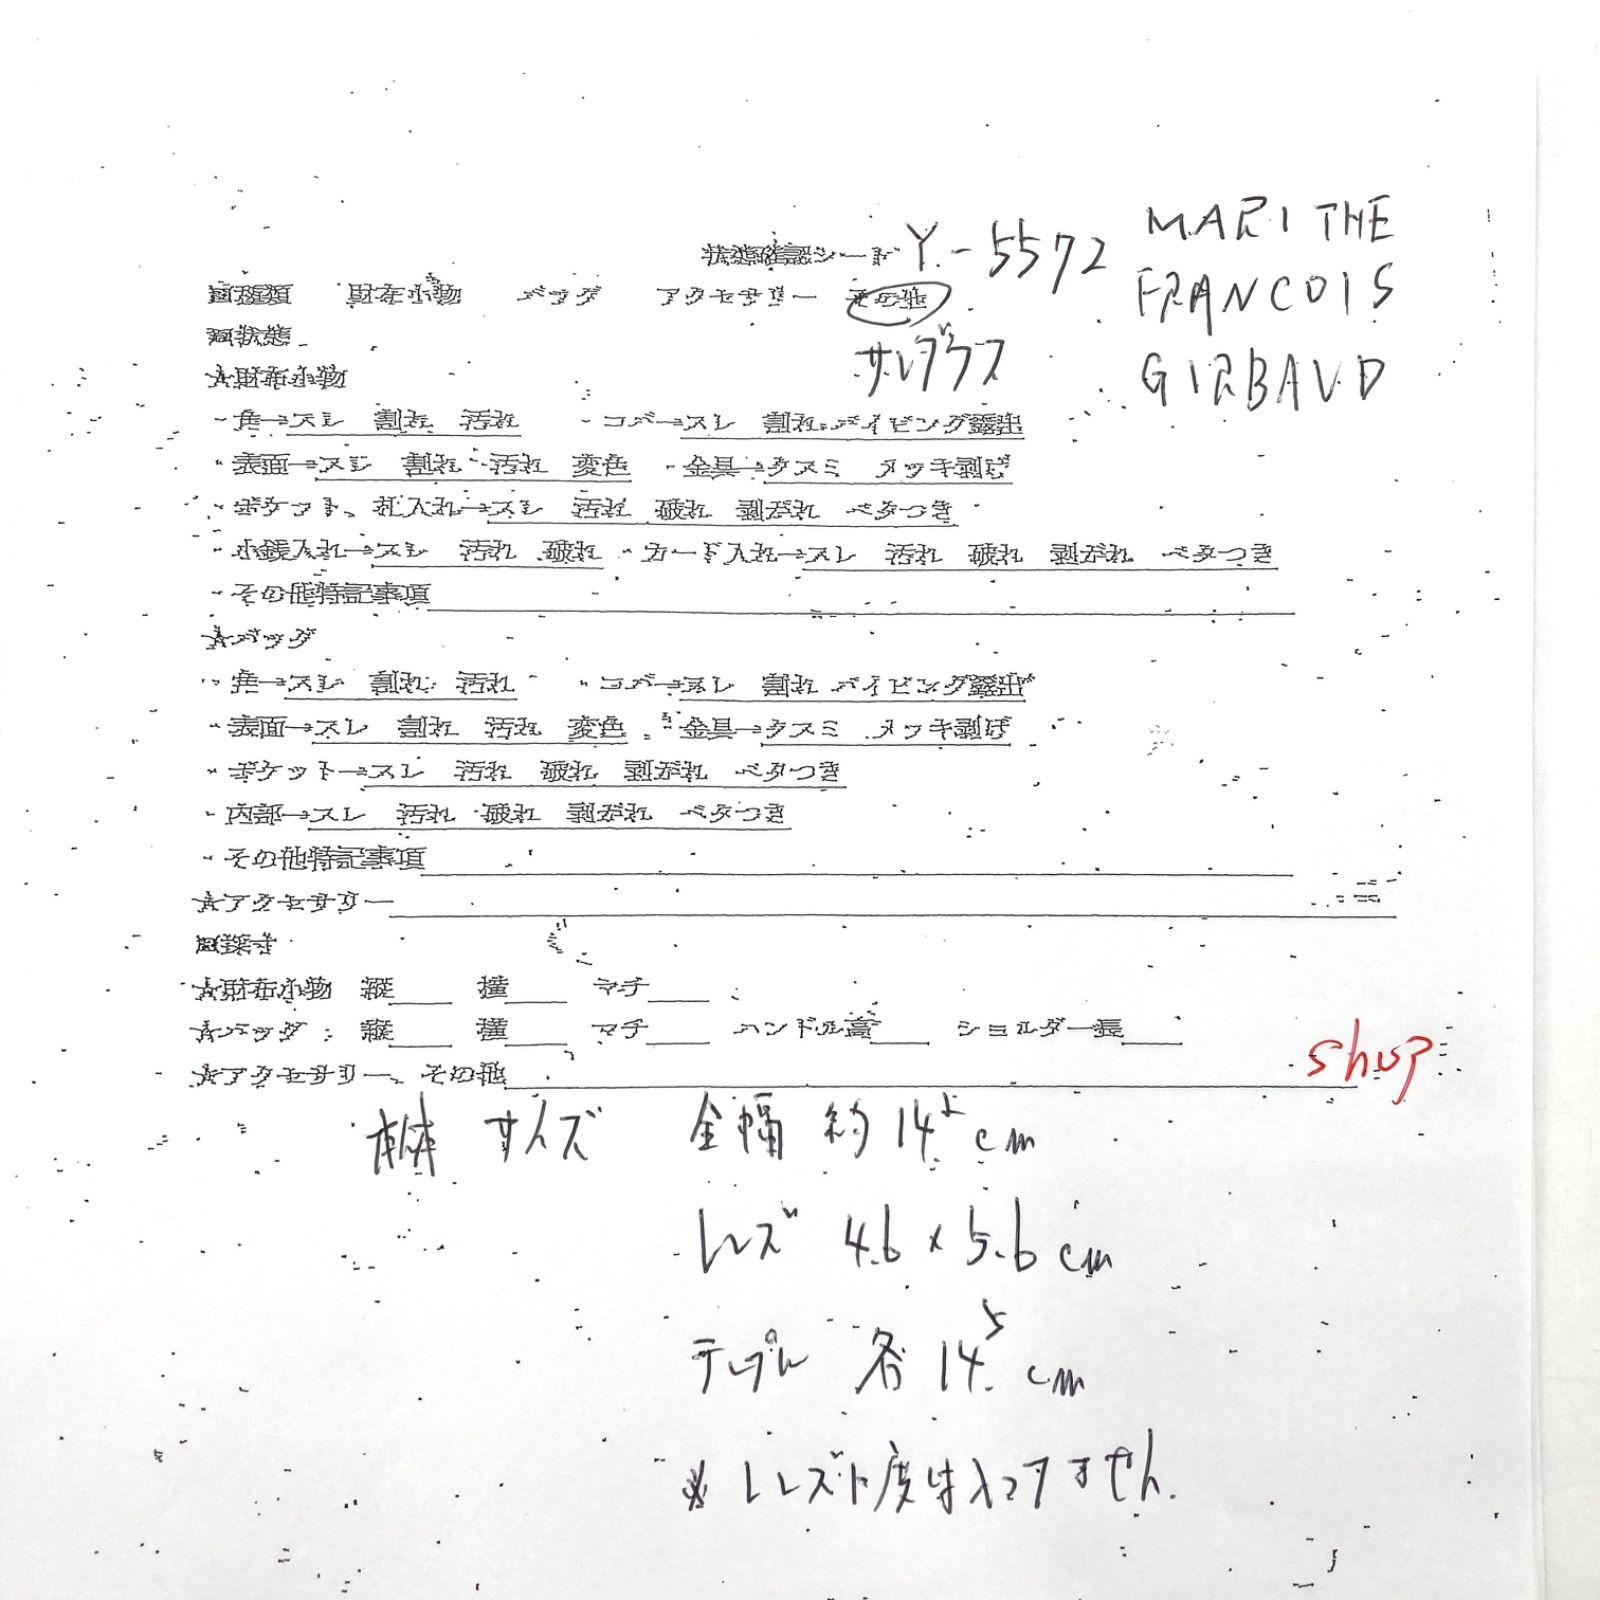 状態確認シート Y-5572 MARITHE
FRANCOIS
GIRBAUD
回種類 財布小物 バッグ アクセサリー その他
サングラス
回状態
☆財布小物
・角→スレ 割れ 汚れ ・コバ→スレ 割れ パイピング露出
・表面→スレ 割れ 汚れ 変色 ・金具→クスミ メッキ剥げ
・ポケット、札入れ→スレ 汚れ 破れ 剥がれ ベタつき
・小銭入れ→スレ 汚れ 破れ ・カード入れ→スレ 汚れ 破れ 剥がれ ベタつき
・その他特記事項
☆バッグ
・角→スレ 割れ 汚れ ・コバ→スレ 割れ パイピング露出
・表面→スレ 割れ 汚れ 変色 ・金具→クスミ メッキ剥げ
・ポケット→スレ 汚れ 破れ 剥がれ ベタつき
・内部→スレ 汚れ 破れ 剥がれ ベタつき
・その他特記事項
☆アクセサリー
回採寸
☆財布小物 縦 横 マチ
☆バッグ 縦 横 マチ ハンドル高 ショルダー長
☆アクセサリー、その他
shop
本体 サイズ 全幅 約14.5cm
レンズ 4.6×5.6cm
テンプル 各14.5cm
※レンズに度は入ってません。